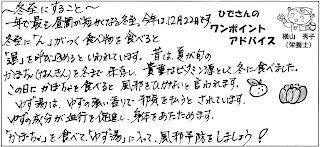 ～冬至にすること～
一年で最も昼間が短かくなる冬至。今年は12月22日です
冬至に「ん」がつく食べ物を食べると
「運」を呼び込めるといわれています。昔は、夏が旬の
かぼちゃ(なんきん)を冬まで保存し、貴重なビタミン源として冬に食べました。
この日にかぼちゃを食べると風邪をひかないと言われます。
ゆず湯は、ゆずの強い香りで邪気を払うとされています。
ゆずの成分が血行を促進し、身体をあたためます。
「かぼちゃ」を食べて、「ゆず湯」に入って、風邪予防をしましょう！
ひでさんの
ワンポイント
アドバイス
横山 秀子
(栄養士)